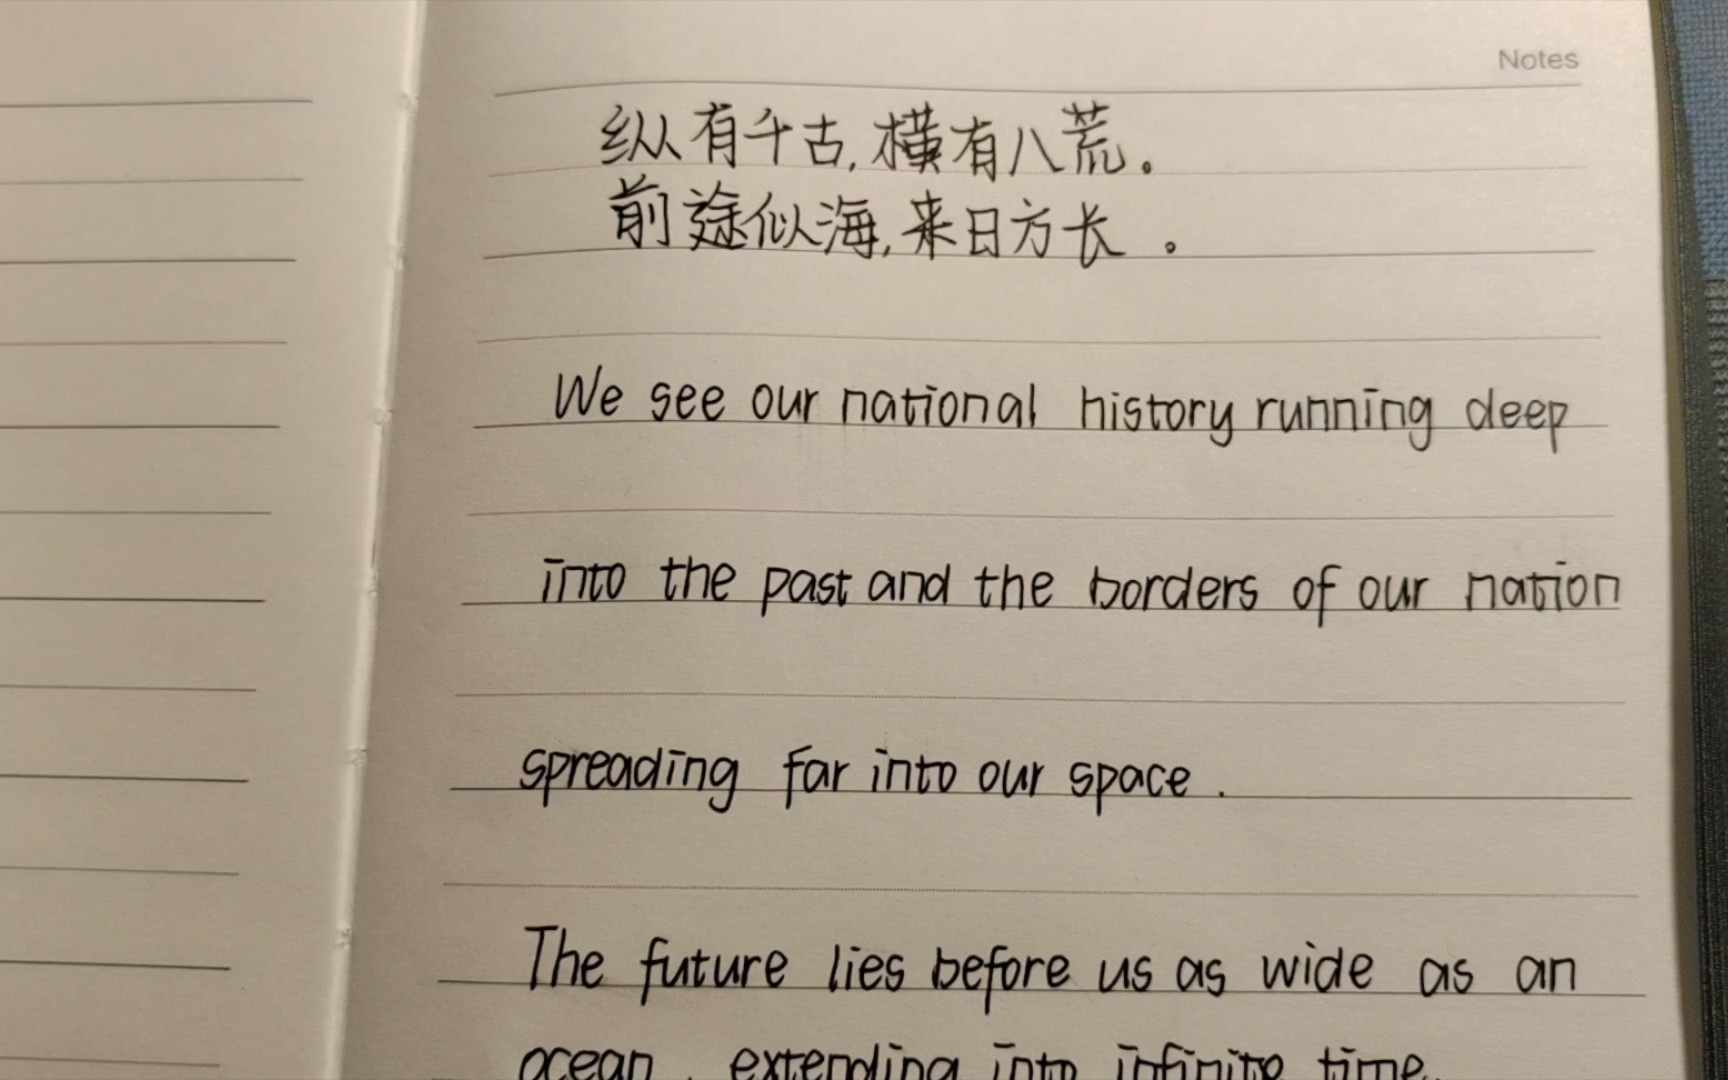 Notes
纵有千古,横有八荒。
前途似海,来日方长。
We see our national history running deep
into the past and the borders of our nation
spreading far into our space.
The future lies before us as wide as an
ocean, extending into infinite time.